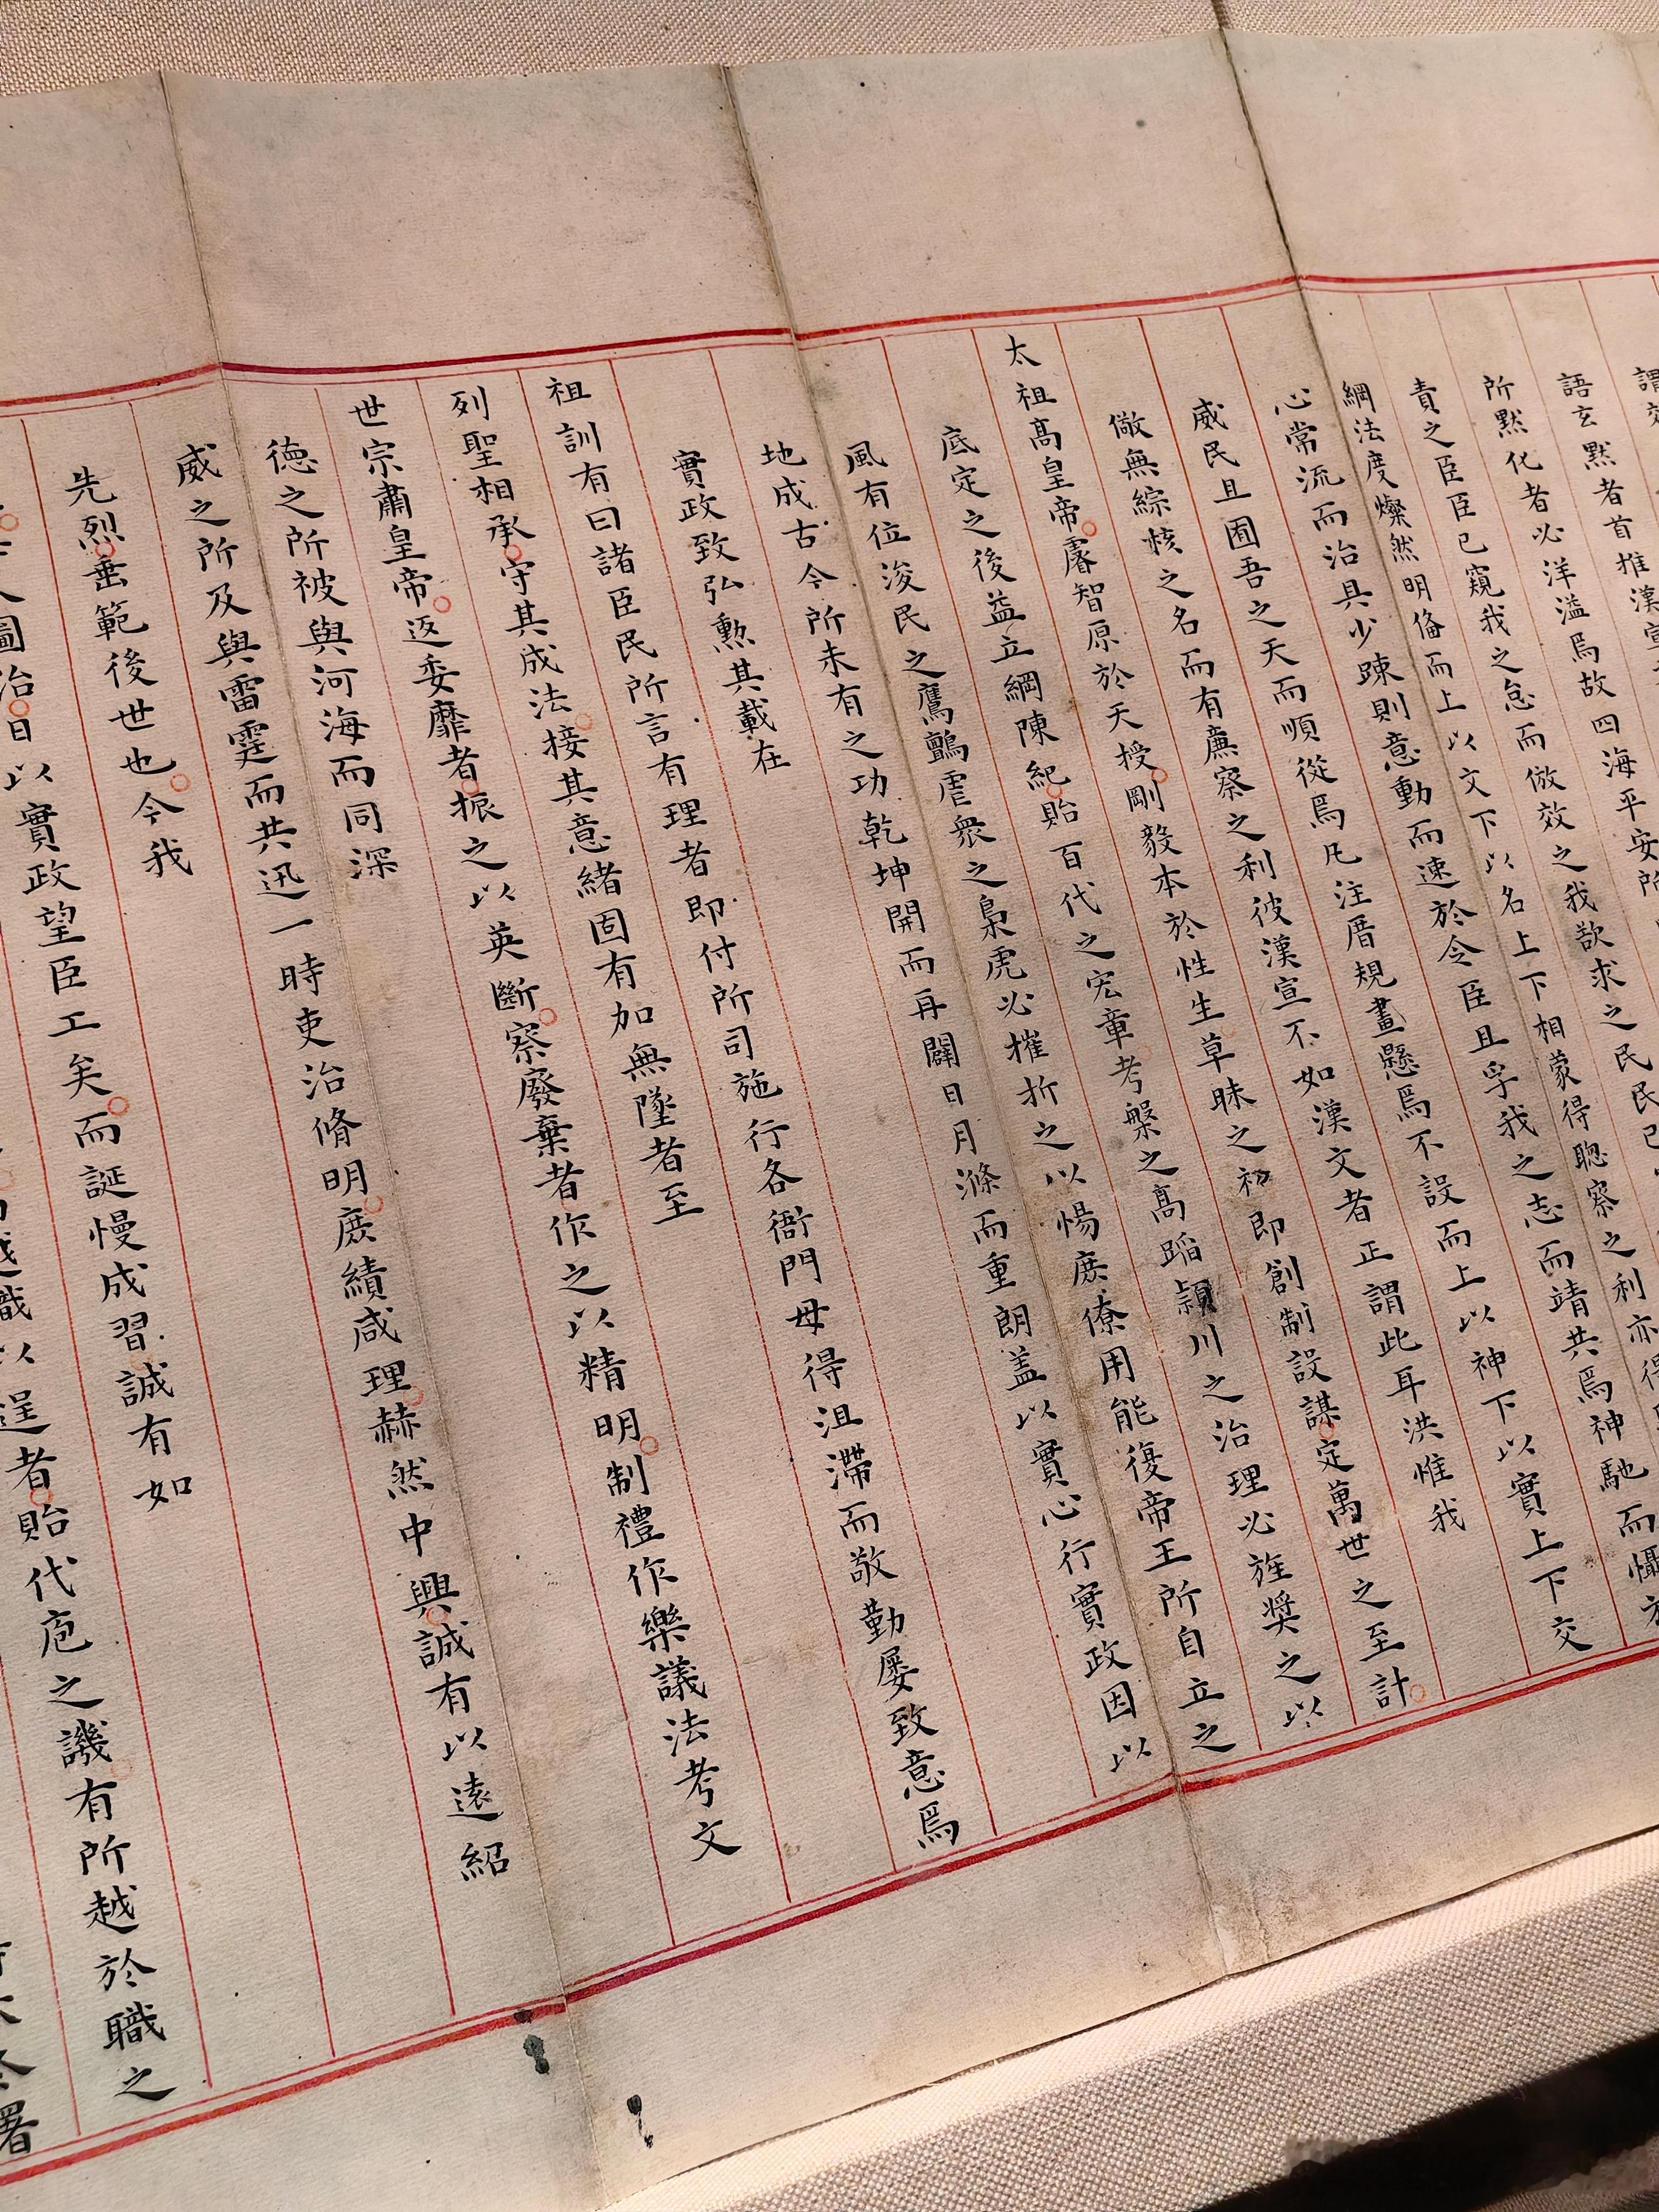 語玄默者首推漢
所默化者必洋溢焉故四海平安所
責之臣臣已窺我之怠而倣效之我欲求之民民已
綱法度燦然明備而上以文下以名上下相蒙得聰察之利亦得
心常流而治具少踈則意動而速於令臣且孚我之志而靖共焉神馳而懾
威民且囿吾之天而順從焉凡注厝規畫懸焉不設而上以神下以實上下交
儆無綜核之名而有廉察之利彼漢宣不如漢文者正謂此耳洪惟我
太祖高皇帝睿智原於天授剛毅本於性生草昧之初即創制設謀定萬世之至計
底定之後益立綱陳紀貽百代之宏章考槃之高蹈潁川之治理必旌奬之以
風有位浚民之鷹鸇虐眾之梟虎必摧折之以惕庶僚用能復帝王所自立之
地成古今所未有之功乾坤開而再闢日月滌而重朗盖以實心行實政因以
實政致弘勲其載在
祖訓有曰諸臣民所言有理者即付所司施行各衙門毋得沮滯而敬勤屢致意焉
列聖相承守其成法接其意緒固有加無墜者至
世宗肅皇帝返委靡者振之以英斷察廢棄者作之以精明制禮作樂議法考文
德之所被與河海而同深
威之所及與雷霆而共迅一時吏治脩明庶績咸理赫然中興誠有以遠紹
先烈垂範後世也今我
圖治日以實政望臣工矣而誕慢成習誠有如
職以逞者貽代庖之譏有所越於職之
署